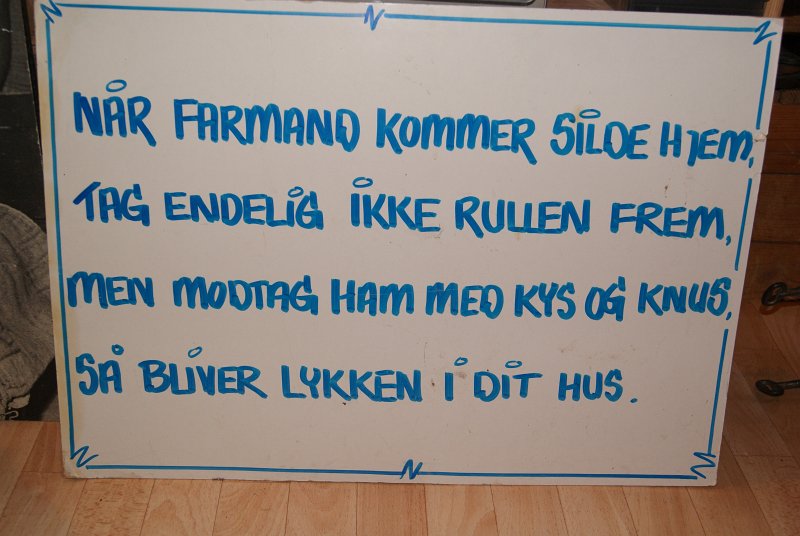 NÅR FARMAND KOMMER SILDE HJEM,
TAG ENDELIG IKKE RULLEN FREM,
MEN MODTAG HAM MED KYS OG KNUS,
SÅ BLIVER LYKKEN I DIT HUS.